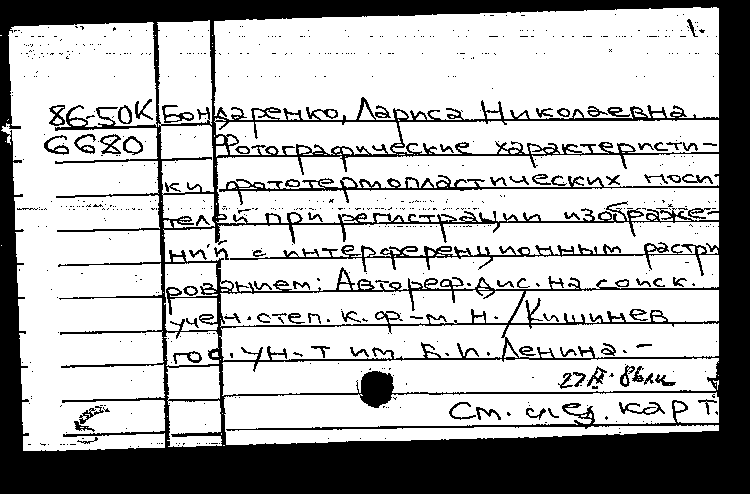 1.
86-50К Бондаренко, Лариса Николаевна.
6680 Фотографические характеристи-
ки фототермопластических носи-
телей при регистрации изображе-
ний с интерференционным растри
рованием: Автореф. дис. на соиск.
учен. степ. к. ф.-м. н. / Кишинев.
гос. ун-т им. В. И. Ленина. –
См. след. карт.